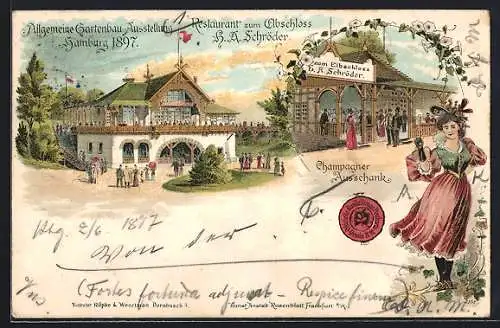 Allgemeine Gartenbau Ausstellung
Hamburg 1897.
Restaurant zum Elbschloss
H. A. Schröder
zum Elbschloss
H. A. Schröder.
Champagner
Ausschank.
Hbg 2/6 1897
Von der
(Fortes fortuna adjuvat – Respice finem
Kunstanstalt Rosenblatt Frankfurt a/M.